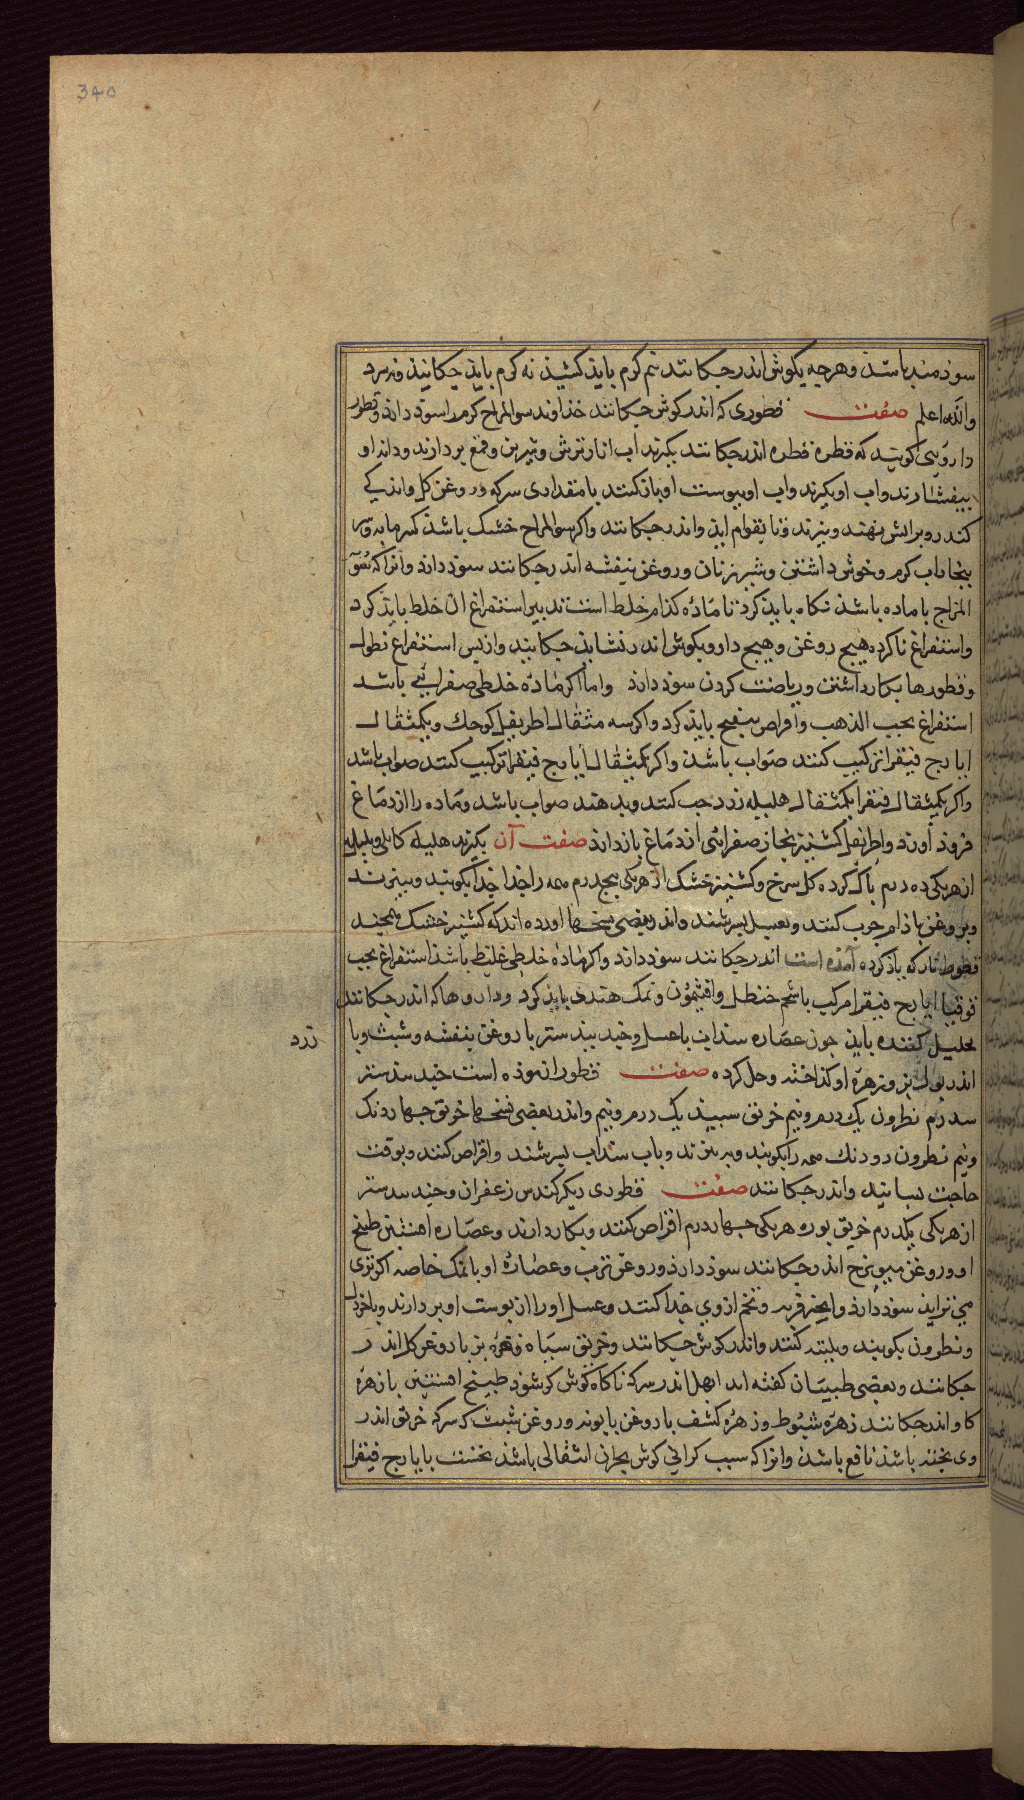 340
سوذمند باشذ و هرچه بکوش اندر جکانند نیم کرم بایذ کشیذ نه کرم بایذ جکانیذ و نه سرد
والله اعلم صفت قطوری که اندر کوش جکانند خذاوند سوالمزاج کرم را سوذ دارذ و قطور
داروئی کویند که قطره قطره اندر جکانند بکیرند اب انار ترش و شیرین و قمع بردارند و دانه او
بیفشارند و اب او بکیرند و اب او ببوست او باز کنند با مقداری سرکه و روغن کل و اندکی
کندر و بر اتش نهند و بپزند تا بقوام ایذ و اندر جکانند واکر سوالمزاج خشک باشذ کرمابه و سر
ببخار اب کرم و خوش داشتن و شیر زنان و روغن بنفشه اندر جکانند سوذ دارذ و انرا که سو
المزاج با ماده باشذ نکاه بایذ کرد تا ماده کدام خلط است تدبیر استفراغ ان خلط بایذ کرد
و استفراغ ناکرده هیج روغن و هیج دارو بکوش اندر نشایذ جکانیذ و از پس استفراغ نطول
و قطورها بکار داشتن و ریاضت کردن سوذ دارذ واما اکر ماده خلطی صفرائی باشد
استفراغ بحب الذهب و اقراص بنفسج بایذ کرد و اکر سه مثقال اطریفل کوجک و یکمثقال
ایارج فیقرا ترکیب کنند صواب باشذ و اکر یکمثقال ایارج فیقرا ترکیب کنند صواب باشد
واکر یکمثقال فیقرا یکمثقال هلیله زرد حب کنند و بدهند صواب باشد و ماده را از دماغ
فروذ آورد و اطریفل کشنیز بخار صفرائی از دماغ باز دارذ صفت آن بکیرند هلیله کابلی و بلیله
از هر یکی ده درم پاک کرده کل سرخ و کشنیز خشک از هر یکی پنجدرم همه را جذا جذا بکوبند و ببیزند
و بروغن باذام جرب کنند و بعسل بسرشند و اندر بعضی نسخها اورده اند که کشنیز خشک
اندر جکانند سوذ دارد و اکر ماده خلطی غلیظ باشذ استفراغ بحب
قوقیا ایارج فیقرا مرکب باشحم حنظل و افتیمون و نمک هندی بایذ کرد و داروها که اندر جکانند
تحلیل کننده بایذ جون عصاره سذاب با عسل و جند بیدستر با روغن بنفشه و شبث و با
زرد
اندر بول بز و زهره او کذاخته و حل کرده صفت قطور ازموده است جند بیدستر
سه درم نطرون یک درم و نیم خربق سبید یک درم و نیم و اندر بعضی نسخها خربق جهار دنک
و نیم نطرون دو دنک همه را بکوبند و ببیزند و باب سذاب بسرشند و اقراص کنند و بوقت
حاجت بسایند و اندر جکانند صفت قطوری دیکر کندس زعفران و جند بیدستر
از هر یکی یکدرم خربق بوره هر یکی جهار درم اقراص کنند و بکار دارند و عصاره افسنتین طبیخ
او و روغن میویزج اندر جکانند سوذ دارذ و روغن ترب و عصاره او با نمک خاصه اکر تری
می تراید سوذ دارذ و انجیر فربه و تخم از وی جذا کنند و عسل او را از بوست او بر دارند و با خردل
و نطرون بکوبند و بلیته کنند و اندر کوش جکانند و خربق سیاه و زهره بز با روغن کل اندر
جکانند و بعضی طبیبان کفته اند ابهل اندر سرکه تا کاه کوش کر شوذ طبیخ افسنتین با زهره
کاو اندر جکانند زهره شبوط و زهره کشف با روغن بابونه و روغن شبث که سرکه خربق اندر
وی بخته باشذ نافع باشذ و انرا که سبب کرانی کوش بحران انتقالی باشذ نخست با یارج فیقرا